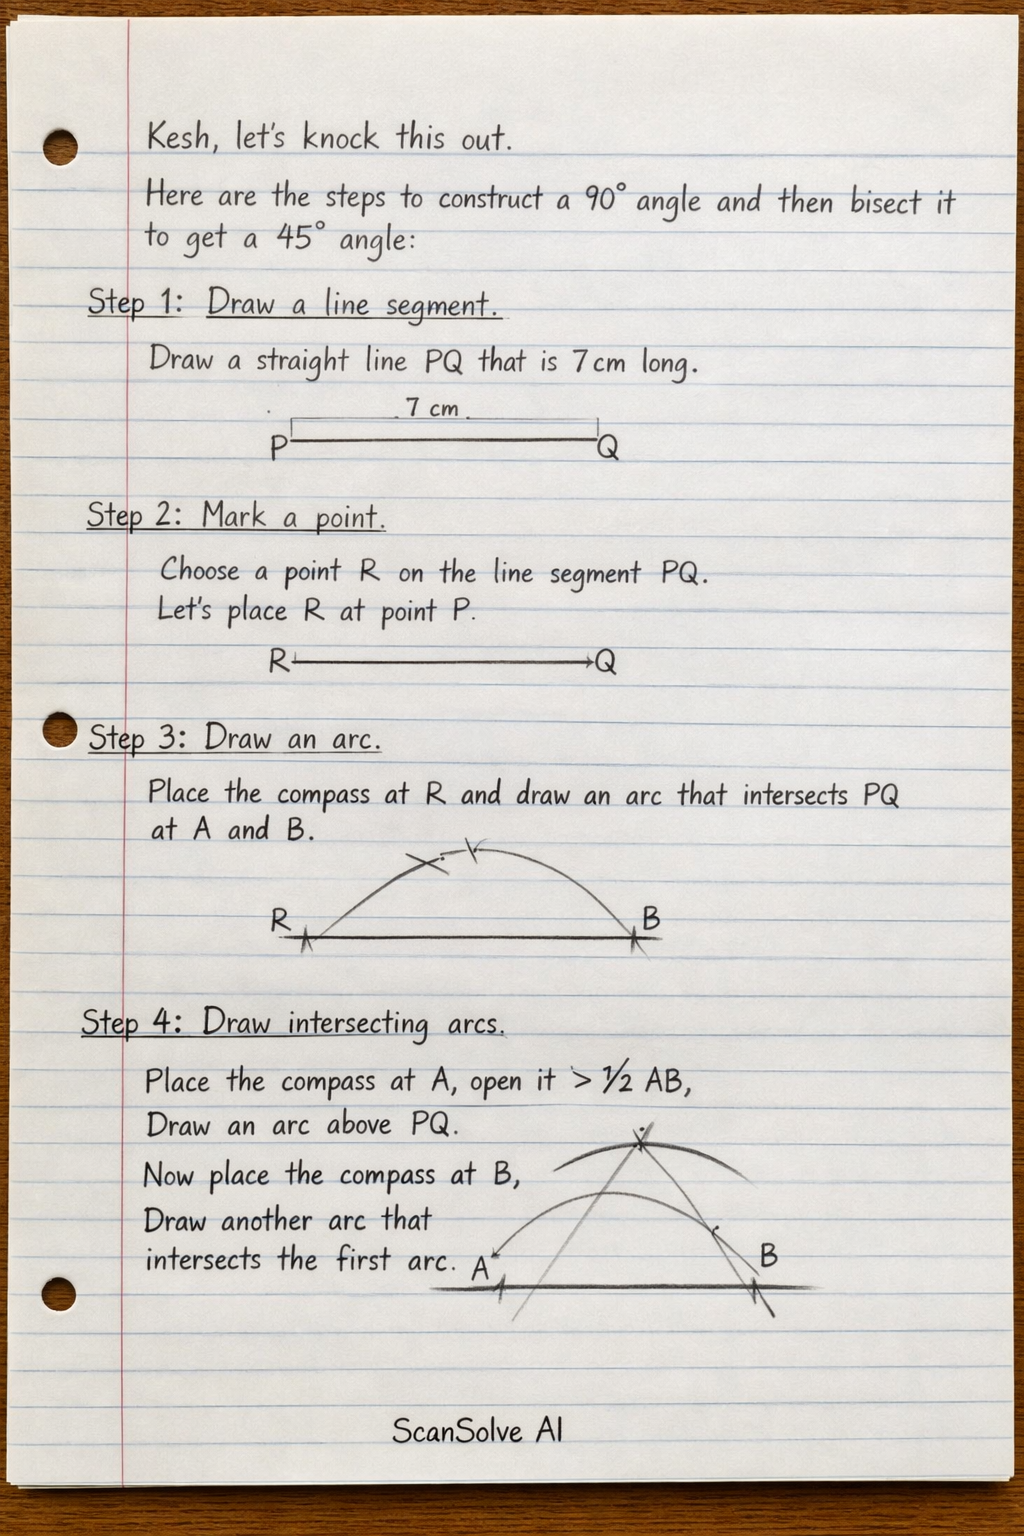 Kesh, let's knock this out.
Here are the steps to construct a 90° angle and then bisect it
to get a 45° angle:
Step 1: Draw a line segment.
Draw a straight line PQ that is 7 cm long.
7 cm
P Q
Step 2: Mark a point.
Choose a point R on the line segment PQ.
Let's place R at point P.
R Q
Step 3: Draw an arc.
Place the compass at R and draw an arc that intersects PQ
at A and B.
R B
Step 4: Draw intersecting arcs.
Place the compass at A, open it > 1/2 AB,
Draw an arc above PQ.
Now place the compass at B,
Draw another arc that
intersects the first arc.
A B
ScanSolve AI